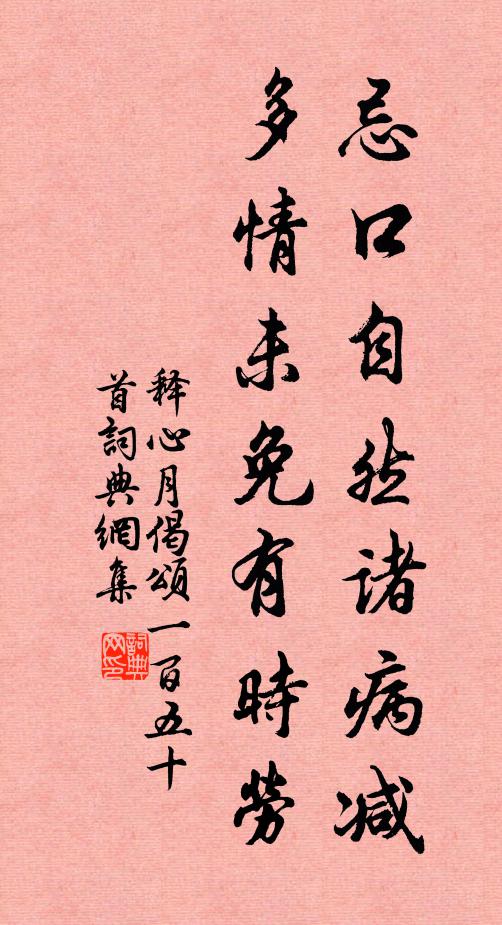 忌口自然諸病減
多情未免有時勞
释心月偈頌一百五十
首詞典網集
詞典網印